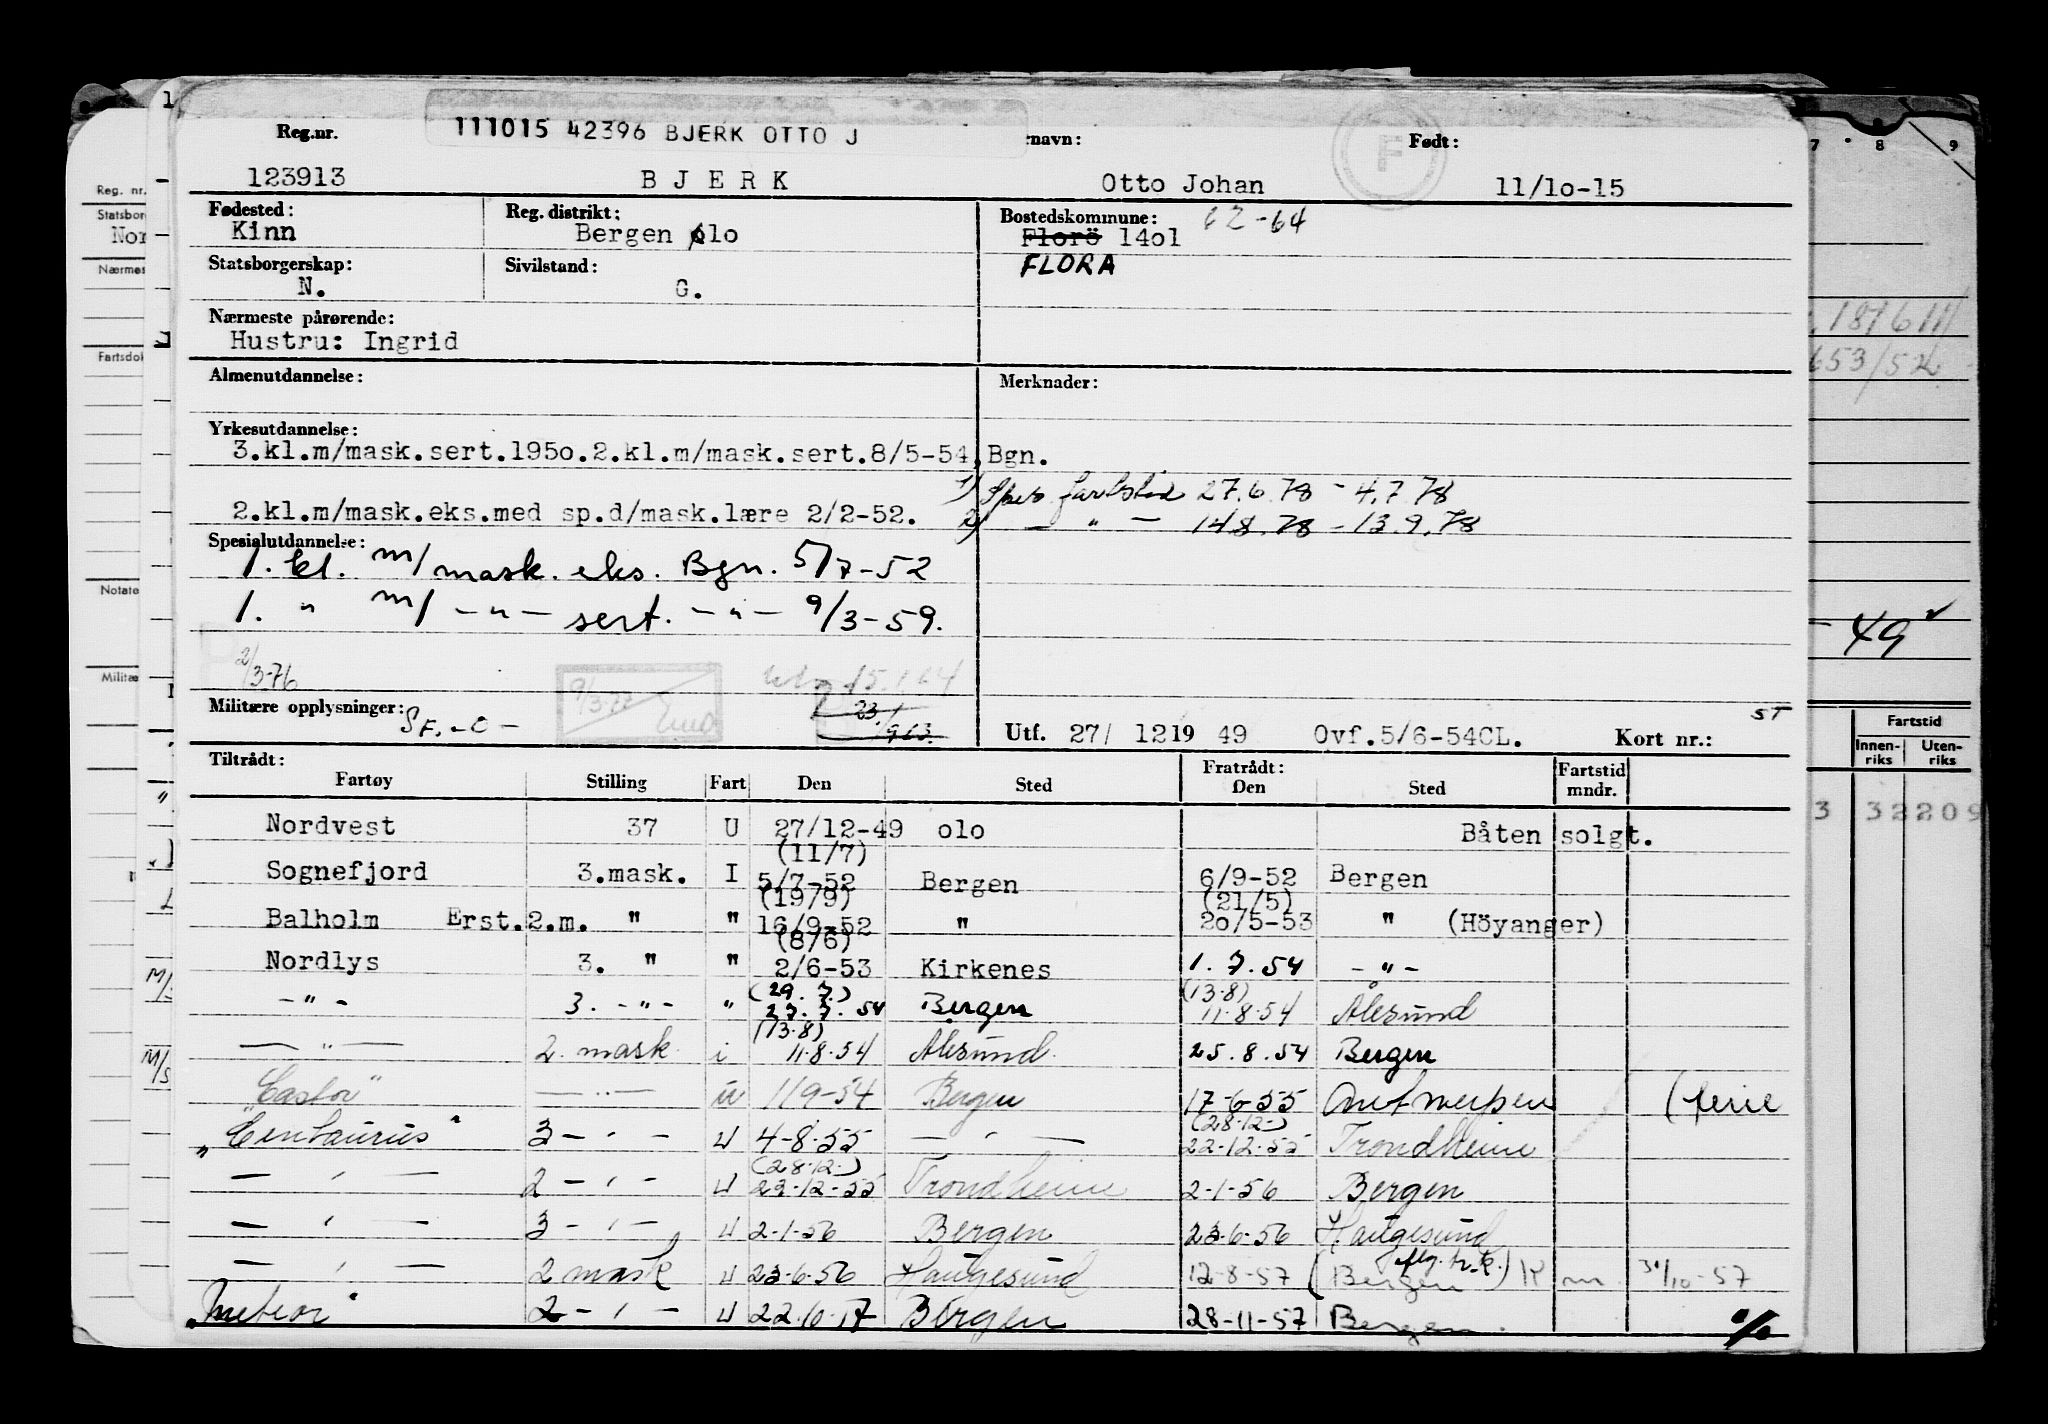 111015 42396 BJERK OTTO J
Reg.nr. :navn: Født:
123913 BJERK Otto Johan 11/1o-15
Fødested: Reg. distrikt: Bostedskommune: 62-64
Kinn Bergen olo Florö 14o1
Statsborgerskap: Sivilstand: FLORA
N. G.
Nærmeste pårørende:
Hustru: Ingrid
Almenutdannelse: Merknader:
Yrkesutdannelse:
3.kl.m/mask.sert.195o.2.kl.m/mask.sert.8/5-54, Bgn.
1) Spes fartstid 27.6.78 - 4.7.78
2.kl.m/mask.eks.med sp.d/mask.lære 2/2-52. 2) — " — 14.8.78 - 13.9.78
Spesialutdannelse:
1. kl. m/mask. eks. Bgn. 5/7-52
1. " m/ -"- sert. -"- 9/3-59.
2/3-76 15.1.64
Militære opplysninger: 23/1
1963.
Utf. 27/ 1219 49 Ovf.5/6-54CL. Kort nr.: ST
Tiltrådt: Fratrådt: Fartstid
Fartøy Stilling Fart Den Sted Den Sted mndr.
Nordvest 37 U 27/12-49 olo Båten solgt.
(11/7)
Sognefjord 3.mask. I 5/7-52 Bergen 6/9-52 Bergen
(19/9) (21/5)
Balholm Erst.2.m. " " 16/9-52 " 2o/5-53 " (Höyanger)
(8/6)
Nordlys 3. " " 2/6-53 Kirkenes 1.7.54 -"-
(29.7.) (13.8)
-"- 3. -"- " 27.7.54 Bergen 11.8.54 Ålesund
(13.8)
-"- 2. mask. i 11.8.54 Ålesund. 25.8.54 Bergen
"Castor" -"- u 1/9-54 Bergen 17-6-55 Antwerpen (ferie
(28.12-)
"Centaurus" 3 - " - u 4-8-55 - " - 22-12-55 Trondheim
(28.12-)
- " - 2 - " - u 22-12-55 Trondheim 2-1-56 Bergen
- " - 3 - " - u 2-1-56 Bergen 23-6-56 Haugesund
- " - 2 mask u 23-6-56 Haugesund 12-8-57 (Bergen) 31/10-57
"Meteor" 2 - " - u 22.10.57 Bergen 28-11-57 Bergen.
Reg. nr.
Nærmes
Notate
7 8 9
653/52
49
Fartstid
Innen-riks Uten-riks
3 32209